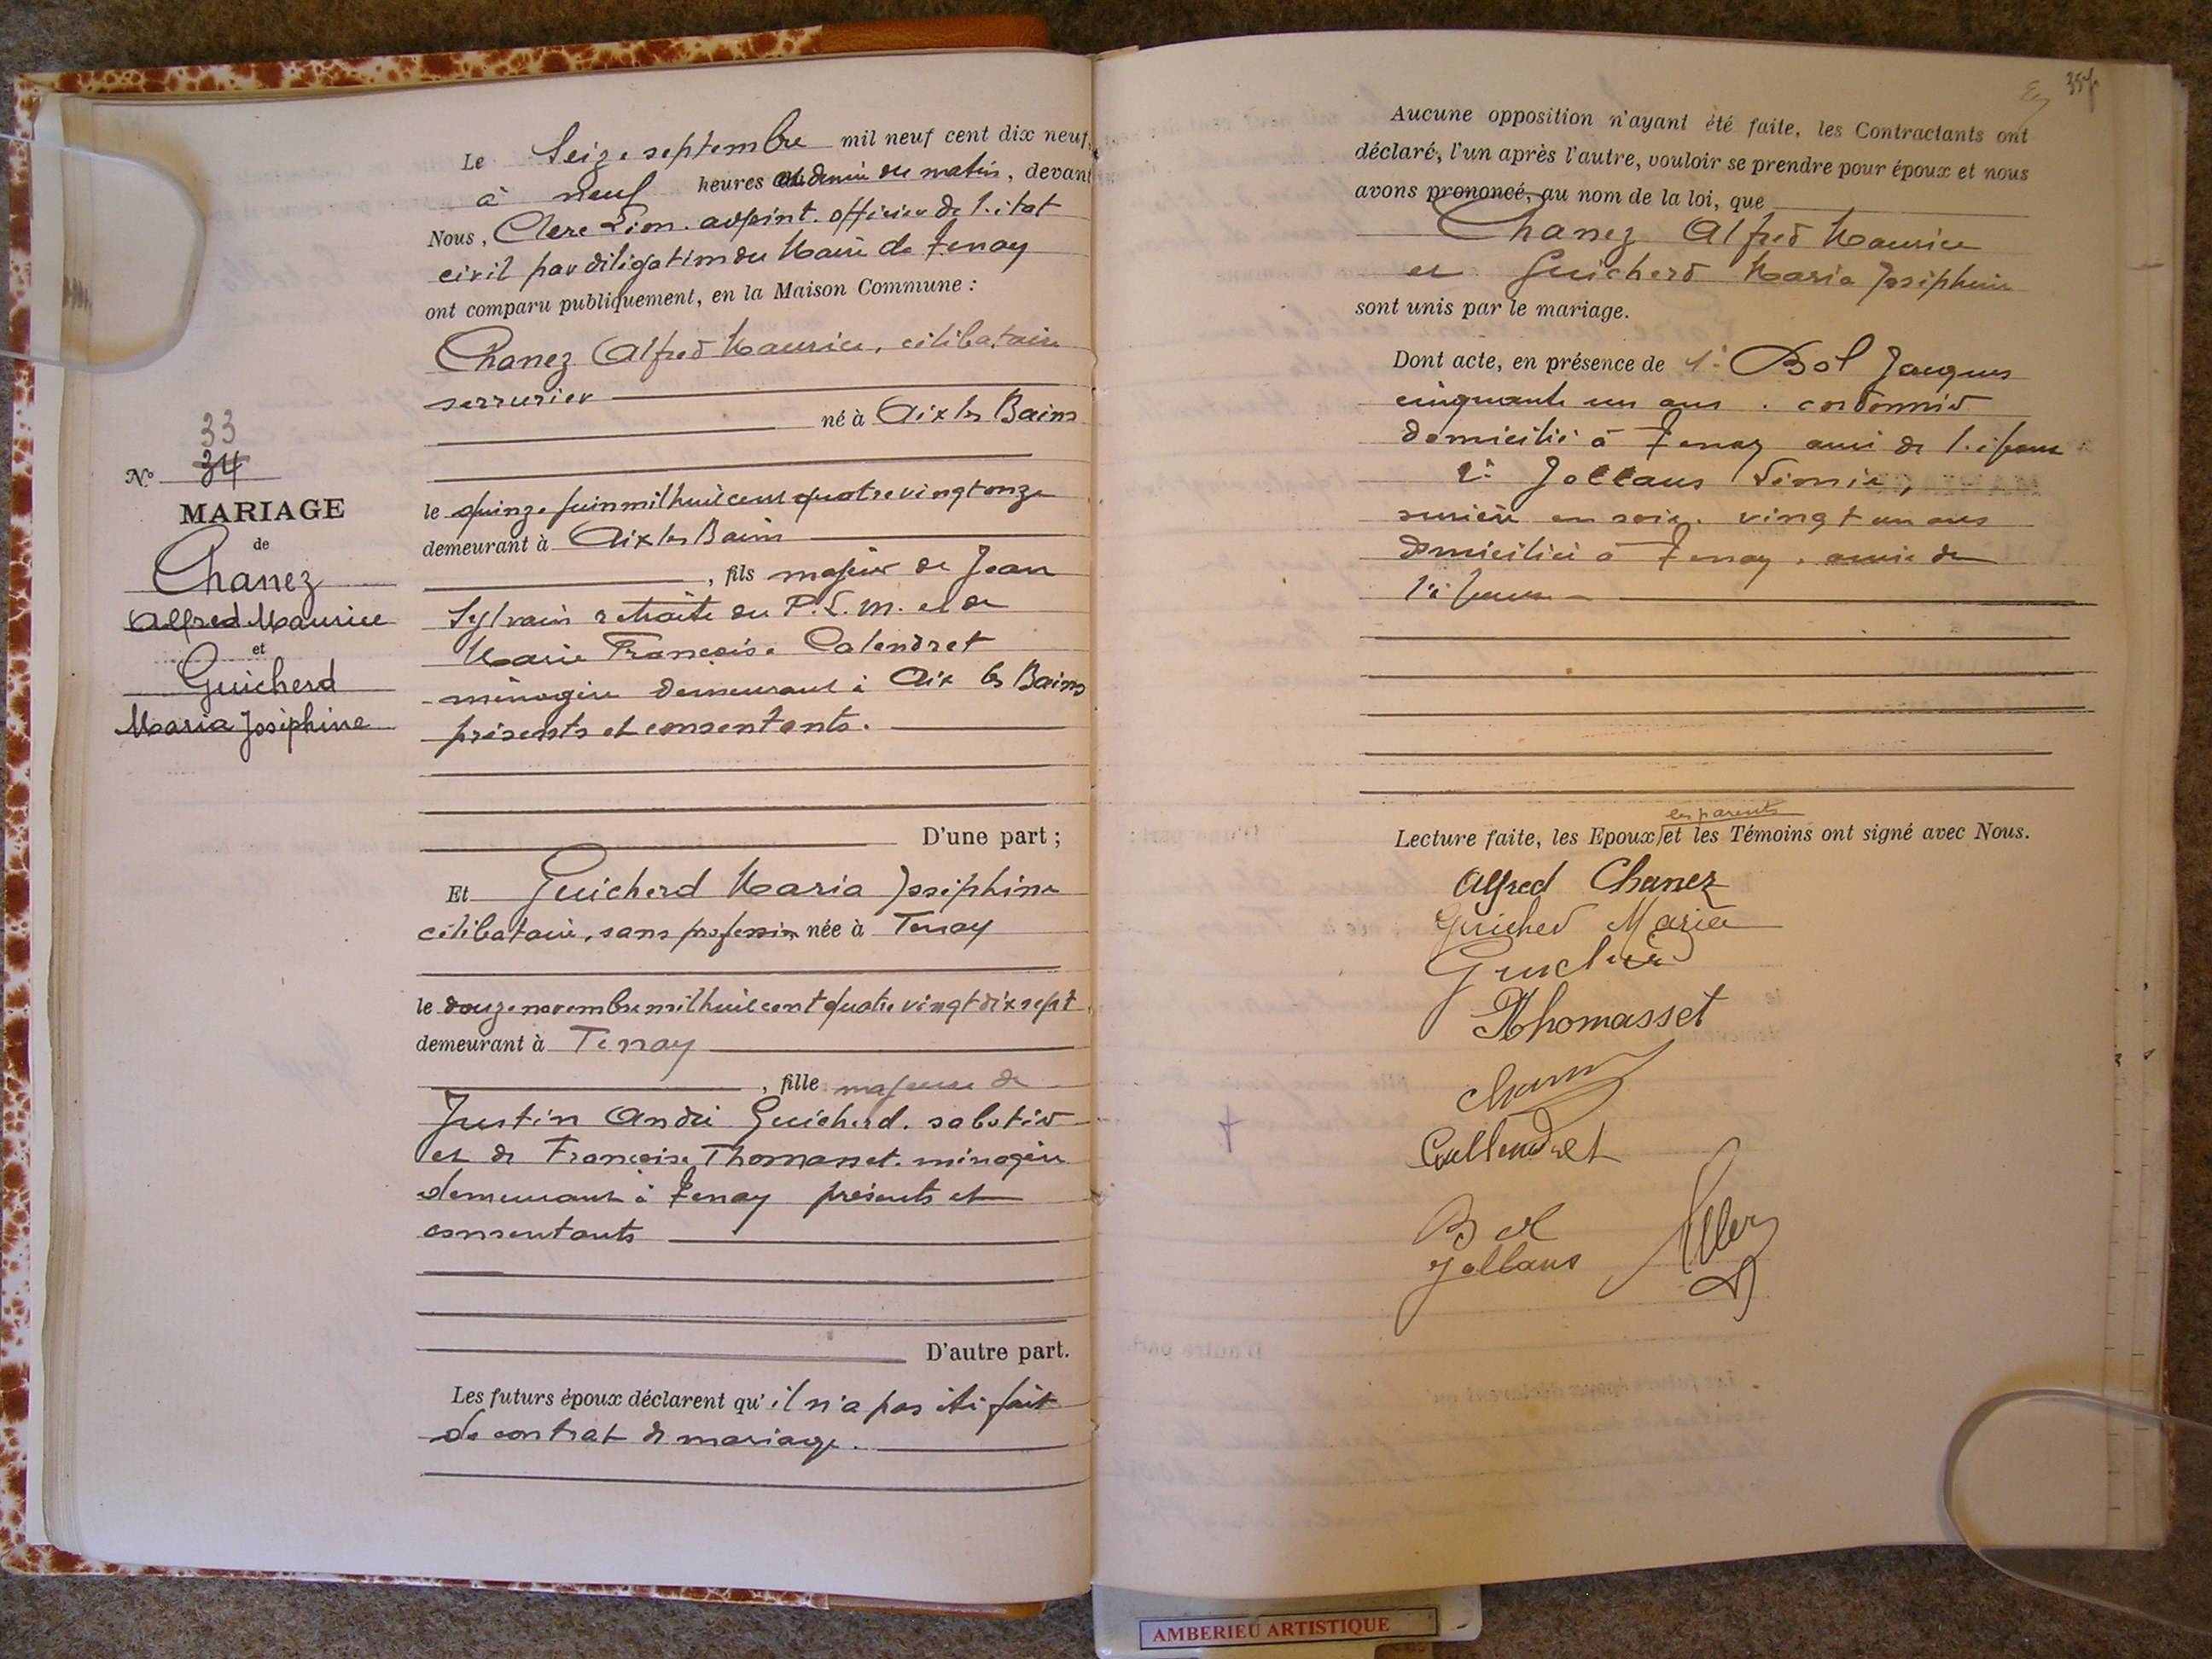 33
N° 34
MARIAGE
de
Chanez
Alfred Maurice
et
Guicherd
Maria Joséphine
Le Seize septembre mil neuf cent dix neuf,
à neuf heures et demie du matin, devant
Nous, Clerc Léon. adjoint. officier de l'état
civil par délégation du Maire de Tenay
ont comparu publiquement, en la Maison Commune :
Chanez Alfred Maurice, célibataire
serrurier
né à Aix les Bains
le quinze juin mil huit cent quatre vingt onze
demeurant à Aix les Bains
, fils majeur de Jean
Sylvain retraité du P.L.M. et de
Marie Françoise Calendret
ménagère demeurant à Aix les Bains
présents et consentants.
D'une part ;
Et Guicherd Maria Joséphine
célibataire, sans profession née à Tenay
le douze novembre mil huit cent quatre vingt dix sept
demeurant à Tenay
, fille majeure de
Justin André Guicherd. sabotier
et de Françoise Thomasset. ménagère
demeurant à Tenay présents et
consentants
D'autre part.
Les futurs époux déclarent qu'il n'a pas été fait
de contrat de mariage.
357
Aucune opposition n'ayant été faite, les Contractants ont
déclaré, l'un après l'autre, vouloir se prendre pour époux et nous
avons prononcé, au nom de la loi, que
Chanez Alfred Maurice
et Guicherd Maria Joséphine
sont unis par le mariage.
Dont acte, en présence de 1° Bol Jacques
cinquante un ans. cordonnier
domicilié à Tenay ami de l'époux
2° Jollans
en soie. vingt un ans
domiciliée à Tenay, amie de
l'épouse
les parents
Lecture faite, les Epoux et les Témoins ont signé avec Nous.
Alfred Chanez
Guicherd Maria
Guicherd
Thomasset
Chanez
Callendret
Bol
Jollans
AMBERIEU ARTISTIQUE